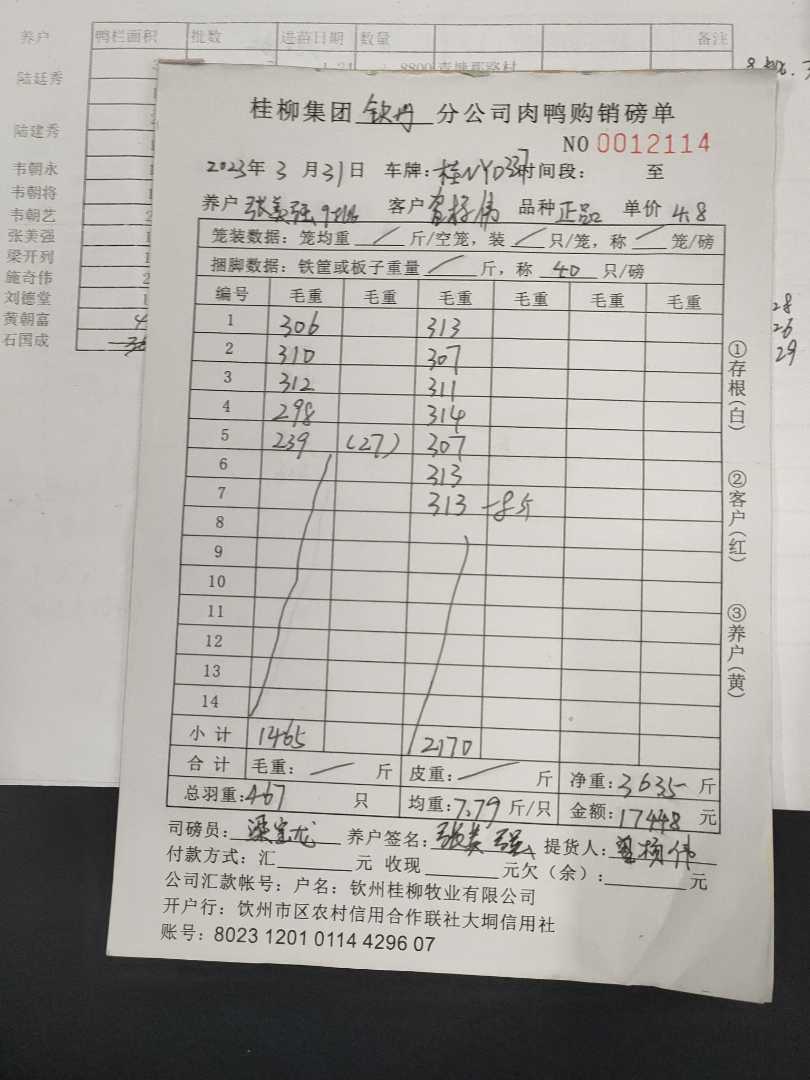 养户 鸭栏面积 批数 进苗日期 数量 备注
8800
陆廷秀
陆建秀
韦朝永
韦朝将
韦朝艺
张美强
梁开列
施奇伟
刘德堂
黄朝富
石国成
28
26
29
桂柳集团 钦丹 分公司肉鸭购销磅单
NO 0012114
2023年 3 月 31 日 车牌: 桂NYD337 时间段: 至
养户 张美强 客户 杨伟 品种 正品 单价 4.8
笼装数据: 笼均重 / 斤/空笼, 装 / 只/笼, 称 / 笼/磅
捆脚数据: 铁筐或板子重量 / 斤, 称 40 只/磅
编号 毛重 毛重 毛重 毛重 毛重 毛重
1 306 313
2 310 307
3 312 311
4 298 314
5 239 (27) 307
6 313
7 313 -8斤
8
9
10
11
12
13
14
小计 1465 2170
合计 毛重: / 斤 皮重: / 斤 净重: 3635 斤
总羽重: 467 只 均重: 7.79 斤/只 金额: 17448 元
司磅员: 梁宝龙 养户签名: 张美强 提货人: 杨伟
付款方式: 汇 元 收现 元欠(余): 元
公司汇款帐号: 户名: 钦州桂柳牧业有限公司
开户行: 钦州市区农村信用合作联社大垌信用社
账号: 8023 1201 0114 4296 07
①存根(白)
②客户(红)
③养户(黄)